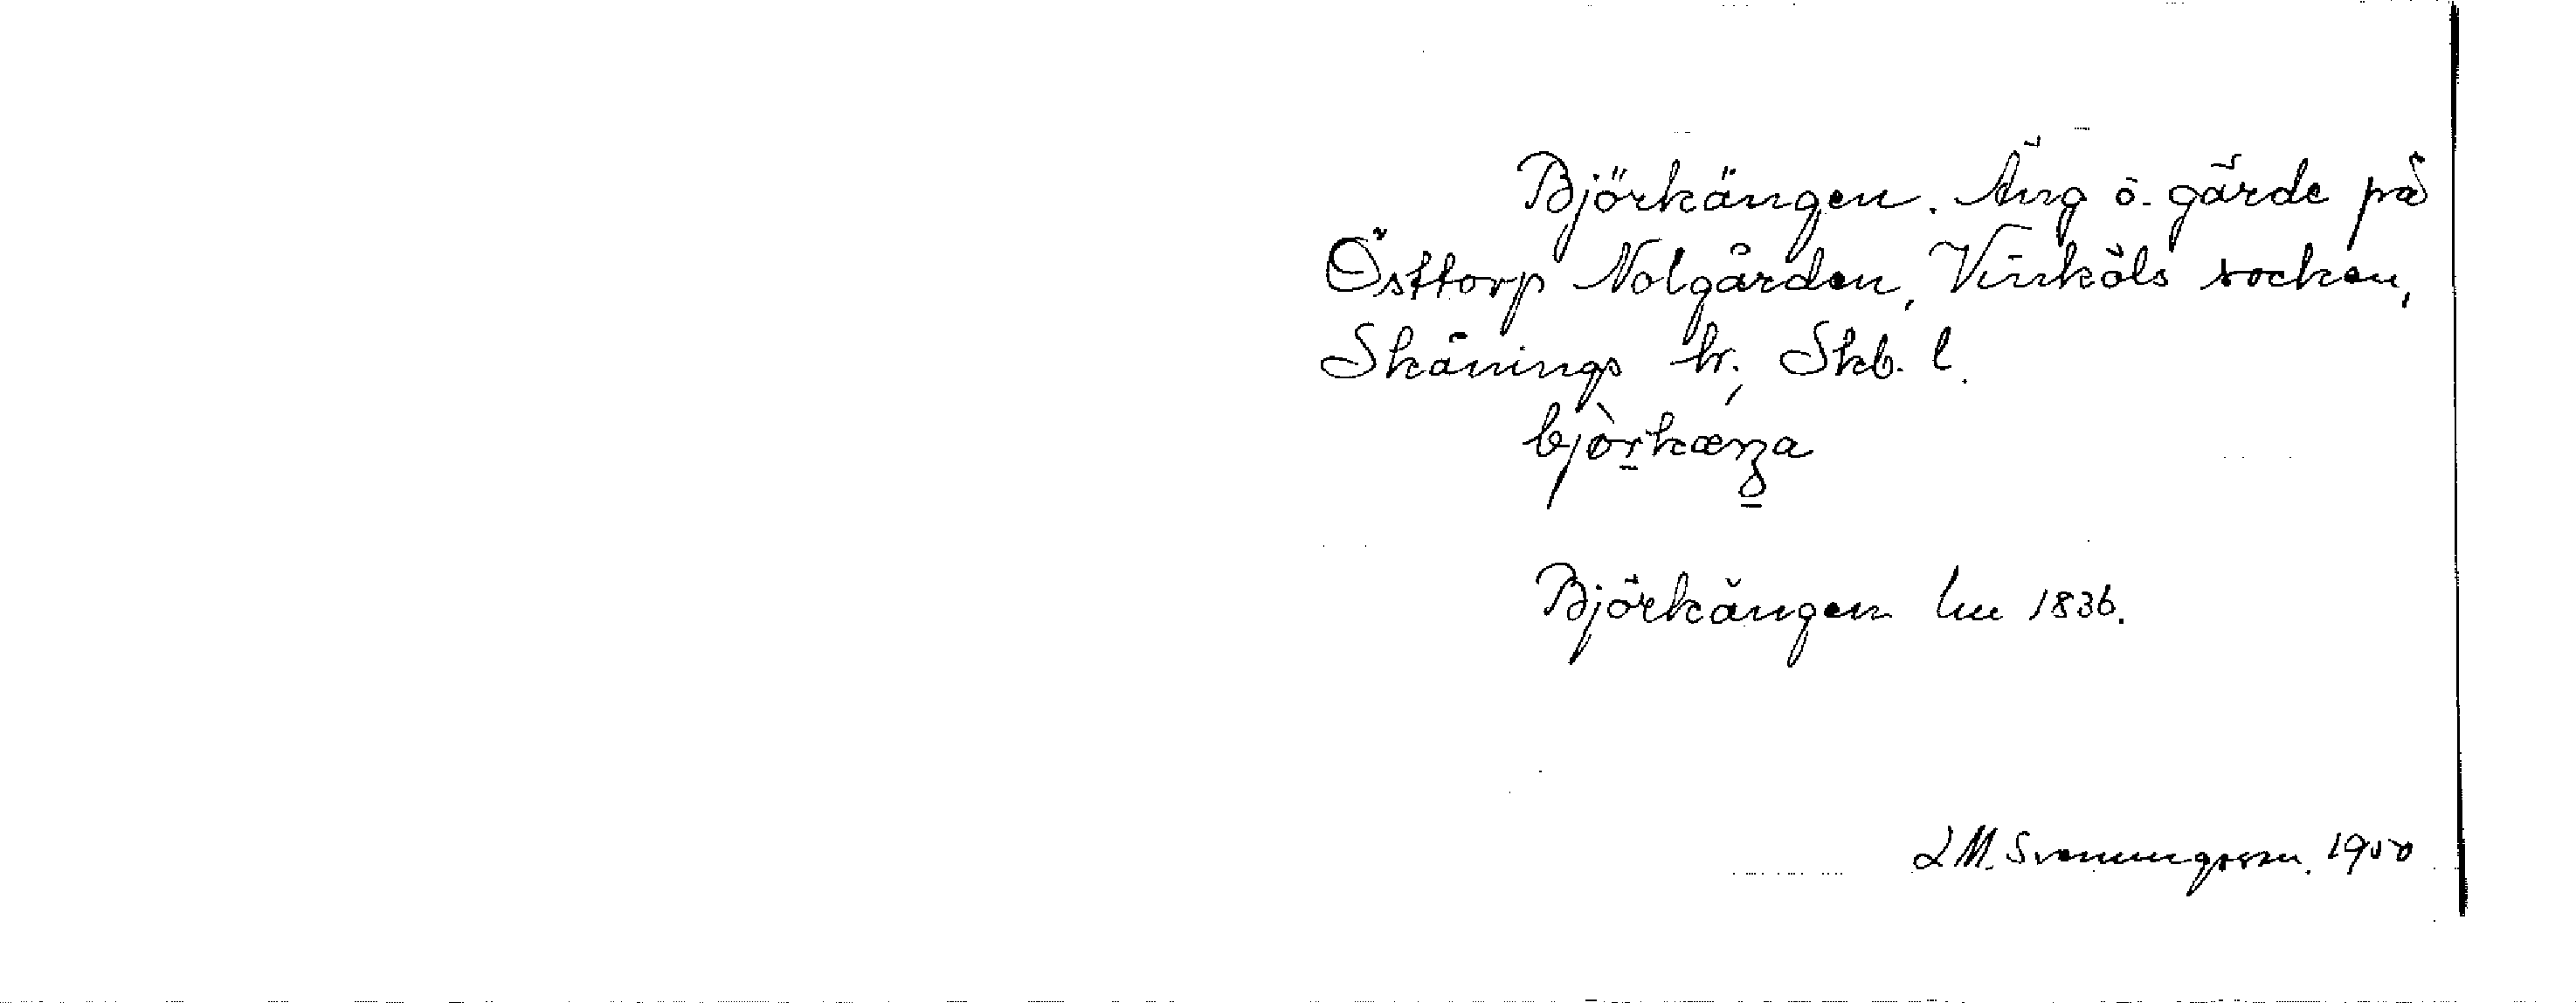 Björkängen. Äng ö. gärde på
Östtorp Nolgården, Vinköls socken,
Skånings hr., Skb. l.
bjòrkæŋa
Björkängen lm 1836.
L M. Svenungsson. 1950